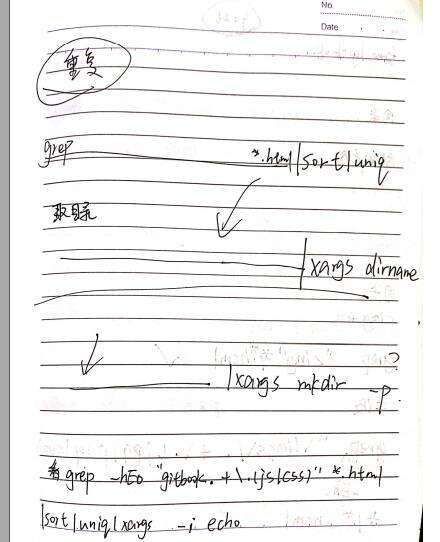 No.
Date
重复
grep *.html|sort|uniq
取目录
|xargs dirname
|xargs mkdir -p ?
grep -hEo "gitbook.+\.(js|css)" *.html
|sort|uniq|xargs -i echo